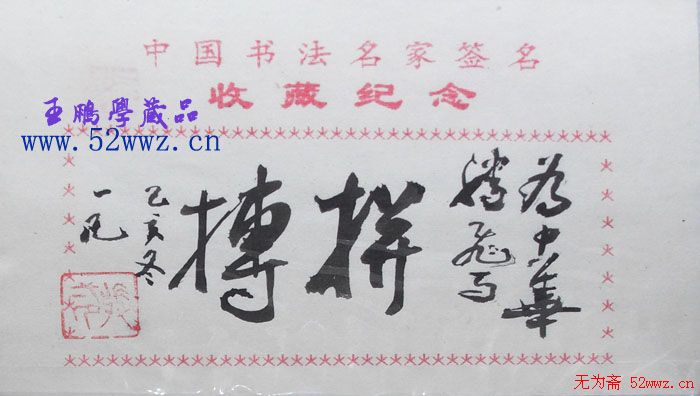 中国书法名家签名
收藏纪念
王鹏學蔵品
www.52wwz.cn
为中華
腾飞
拼搏
乙亥冬
一凡
无为斋 52wwz.cn